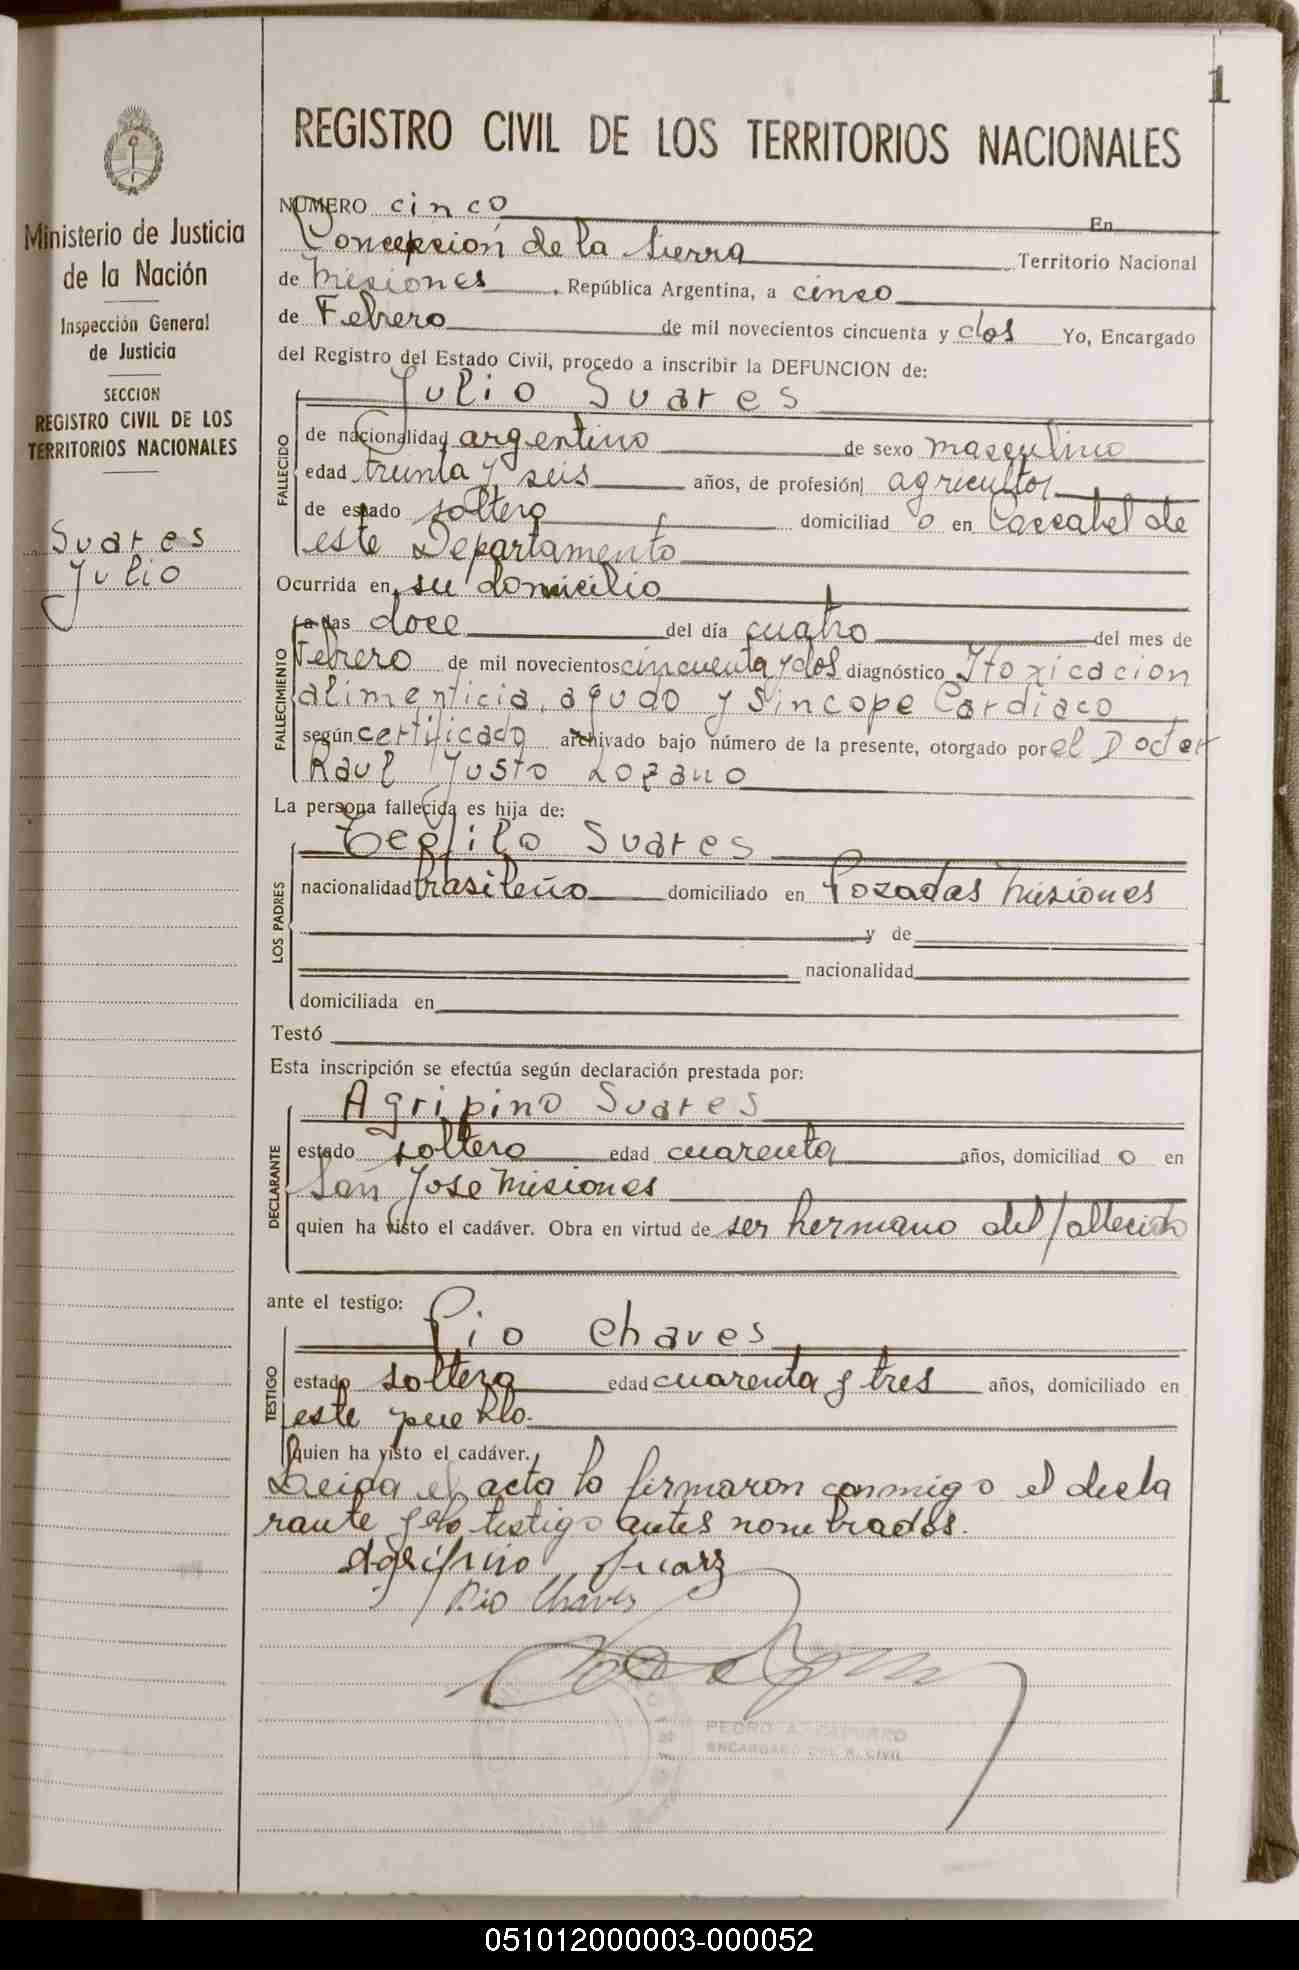 1
REGISTRO CIVIL DE LOS TERRITORIOS NACIONALES
Ministerio de Justicia
de la Nación
Inspección General
de Justicia
SECCION
REGISTRO CIVIL DE LOS
TERRITORIOS NACIONALES
Suares
Julio
NUMERO cinco En
Concepcion de la Sierra Territorio Nacional
de Misiones, República Argentina, a cinco
de Febrero de mil novecientos cincuenta y dos Yo, Encargado
del Registro del Estado Civil, procedo a inscribir la DEFUNCION de:
Julio Suares
FALLECIDO
de nacionalidad argentino de sexo masculino
edad treinta y seis años, de profesión agricultor
de estado soltero domiciliad o en
este Departamento
Ocurrida en su domicilio
FALLECIMIENTO
a las doce del día cuatro del mes de
Febrero de mil novecientos cincuenta y dos diagnóstico Itoxicacion
alimenticia, agudo y Sincope Cardiaco
según certificado archivado bajo número de la presente, otorgado por el Doctor
Raul Justo Lozano
La persona fallecida es hija de:
LOS PADRES
Teofilo Suares
nacionalidad brasileño domiciliado en Pozadas Misiones
y de
nacionalidad
domiciliada en
Testó
Esta inscripción se efectúa según declaración prestada por:
DECLARANTE
Agripino Suares
estado soltero edad cuarenta años, domiciliad o en
San Jose Misiones
quien ha visto el cadáver. Obra en virtud de ser hermano del fallecido
ante el testigo:
TESTIGO
Pio Chaves
estado soltero edad cuarenta y tres años, domiciliado en
este pueblo.
quien ha visto el cadáver.
Leida el acta la firmaron conmigo el decla
rante y el testigo antes nombrados.
Agripino Suarz
Pio Chaves
PEDRO A. CAPURRO
ENCARGADO DEL R. CIVIL
051012000003-000052